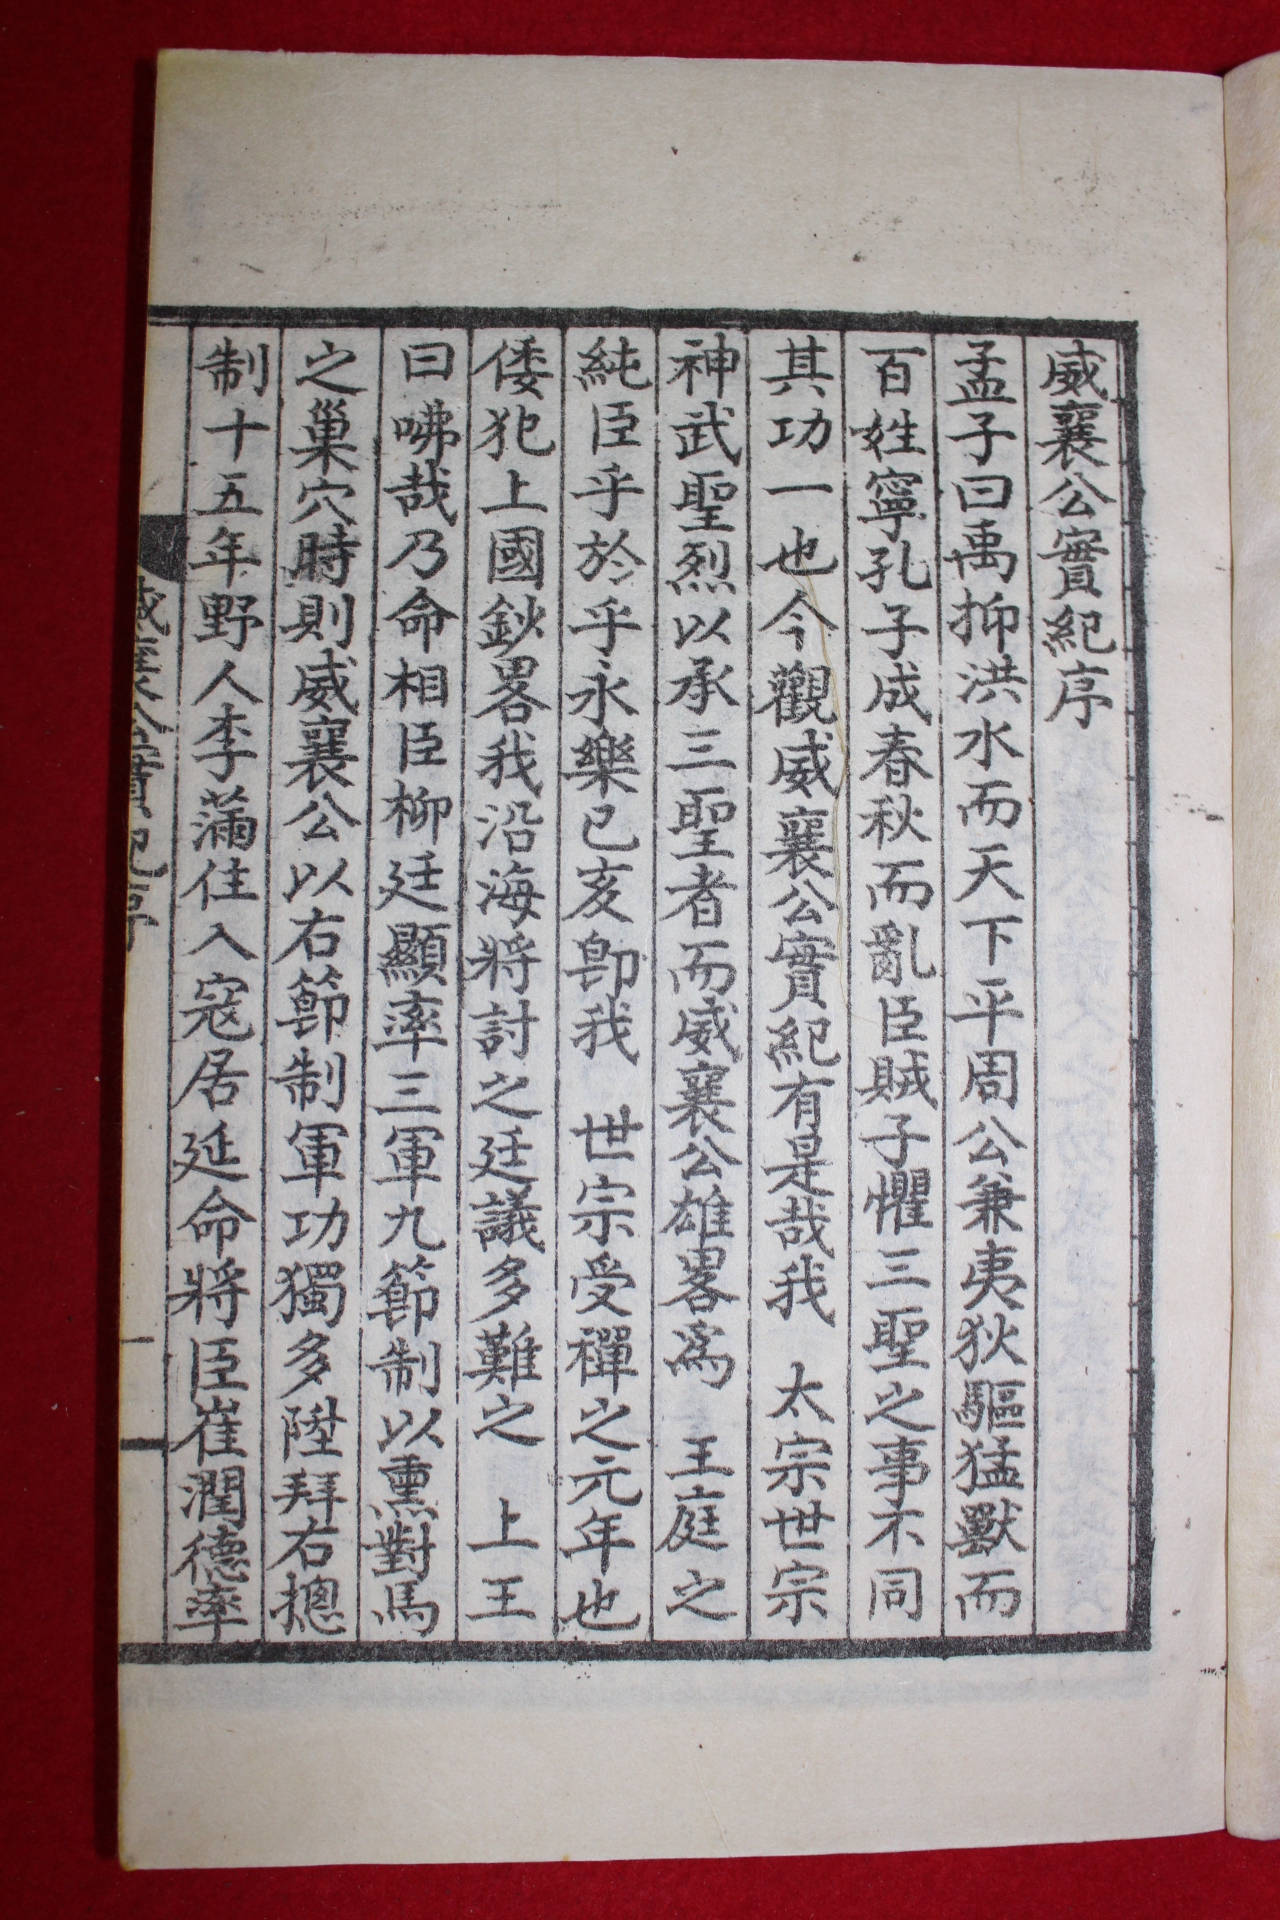 威襄公實紀序
孟子曰禹抑洪水而天下平周公兼夷狄驅猛獸而
百姓寧孔子成春秋而亂臣賊子懼三聖之事不同
其功一也今觀威襄公實紀有是哉我 太宗世宗
神武聖烈以承三聖者而威襄公雄畧爲 王庭之
純臣乎於乎永樂己亥卽我 世宗受禪之元年也
倭犯上國鈔畧我沿海將討之廷議多難之 上王
曰咈哉乃命相臣柳廷顯率三軍九節制以熏對馬
之巢穴時則威襄公以右節制軍功獨多陞拜右摠
制十五年野人李滿住入寇居延命將臣崔潤德率
威襄公實紀序
一